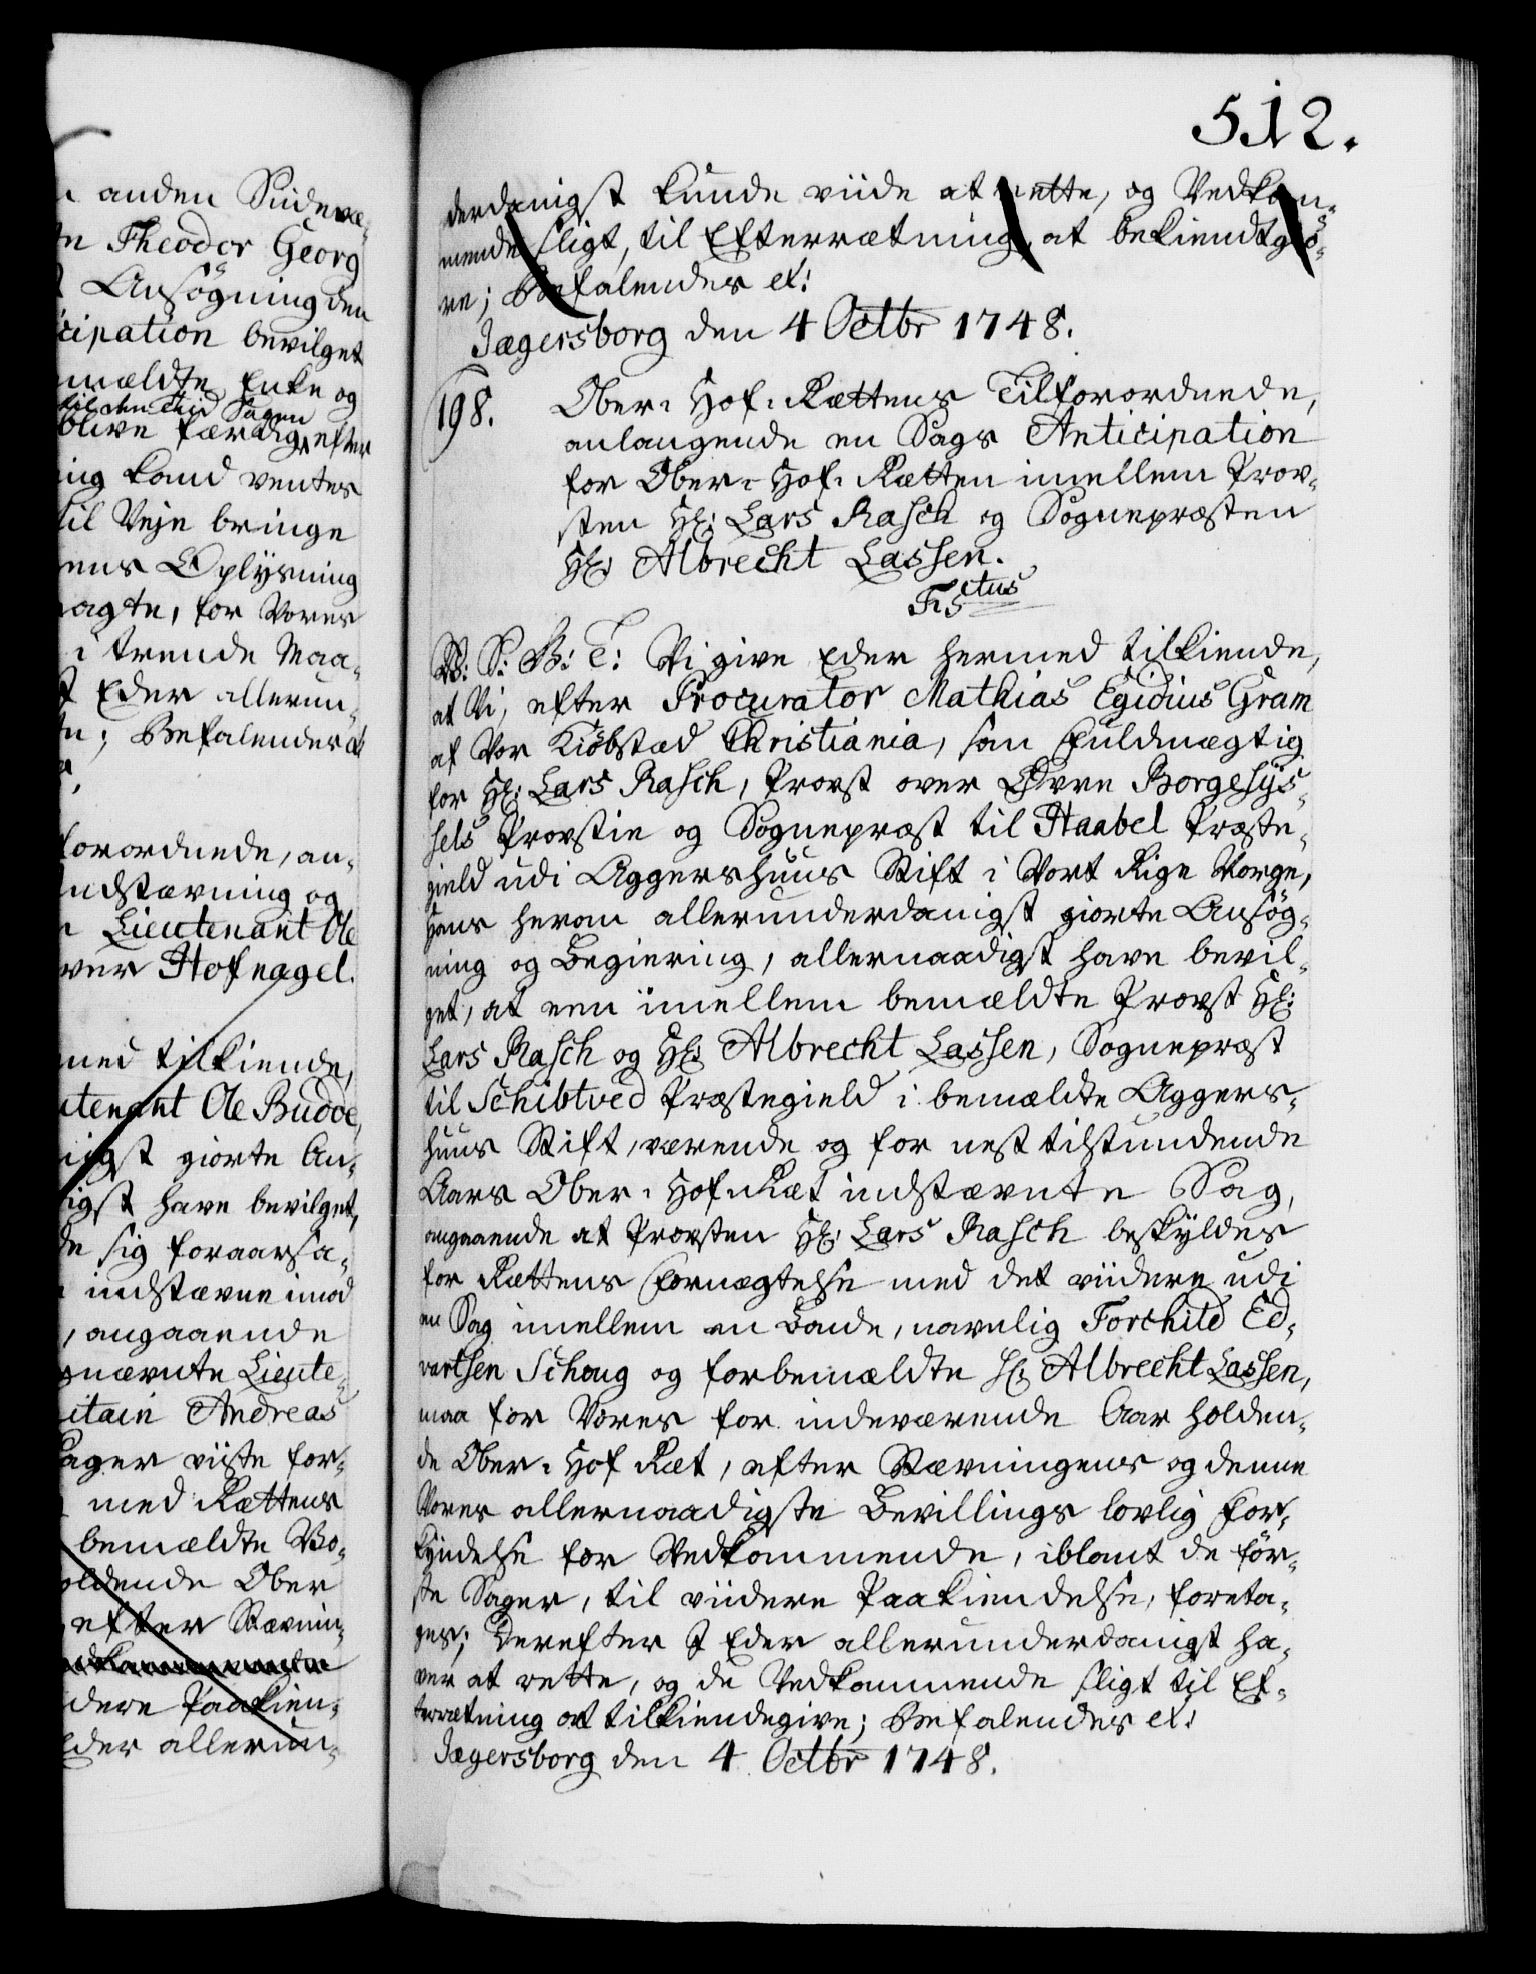 n anden Siidevæ-
te Theodor Georg
Ansøgning den
cipation bevilget
mældte Enke og
til den tiid Sagen
blive færdig, efter
ing kand ventes
til Veje bringe
ens Oplysning
agte, for Vores
i trende Maa-
Eder allerun-
te; Befalendes etc
forordnede, an-
indstævning og
n Lieutenant Ole
ver Hofnagel.
med tilkiende,
utenant Ole Budde,
nigst giorte An-
digst have bevilget,
de sig foraarsa-
n indstævne imod
, angaaende
nævnte Lieute-
itain Andreas
Sager viiste for-
med Rættens
bemældte Vo-
oldende Ober
efter Stævnin-
dere Paakien-
Eder allerun-
512.
derdanigst kunde viide at rette, og Vedkom-
mende sligt, til Efterrætning, at bekiendtgiø-
re; Befalendes etc:
Jægersborg den 4 Octbr 1748.
198.
Ober-Hof-Rættens Tilforordnede,
anlangende en Sags Anticipation
for Ober-Hof-Rætten imellem Prov-
sten Hr: Lars Rasch og Sognepræsten
Hr: Albrecht Lassen.
Frictus
V: S: B: T: Vi give Eder hermed tilkiende,
at Vi, efter Procurator Mathias Egidius Gram
af Vor Kiøbstæd Christiania, som Fuldmægtig
for Hr: Lars Rasch, Provst over Øvre Borgesys-
sels Provstie og Sognepræst til Haabel Præste-
gield udi Aggershuus Stift i Vort Rige Norge,
Hans herom allerunderdanigst giorte Ansøg-
ning og Begiering, allernaadigst have bevil-
get, at een imellem bemældte Provst Hr:
Lars Rasch og Hr: Albrecht Lassen, Sognepræst
til Schibtved Præstegield i bemældte Aggers-
huus Stift, værende og for nest tilstundende
Aars Ober-Hof-Ræt indstævnte Sag,
angaaende at Provsten Hr: Lars Rasch beskyldes
for Rættens Fornægtelse med det viidere udi
en Sag imellem en Bonde, navnlig Torchild Ed-
vartsen Schoug og forbemældte Hr: Albrecht Lassen,
maa for Vores for indeværende Aar holden-
de Ober-Hof Ræt, efter Stævningens og denne
Vores allernaadigste Bevillings lovlig For-
kyndelse for Vedkommende, iblant de för-
ste Sager, til viidere Paakiendelse, foreta-
ges; Derefter I Eder allerunderdanigst ha-
ver at rette, og de Vedkommende sligt til Ef-
terrætning at tilkiendegive; Befalendes etc:
Jægersborg den 4 Octbr 1748.